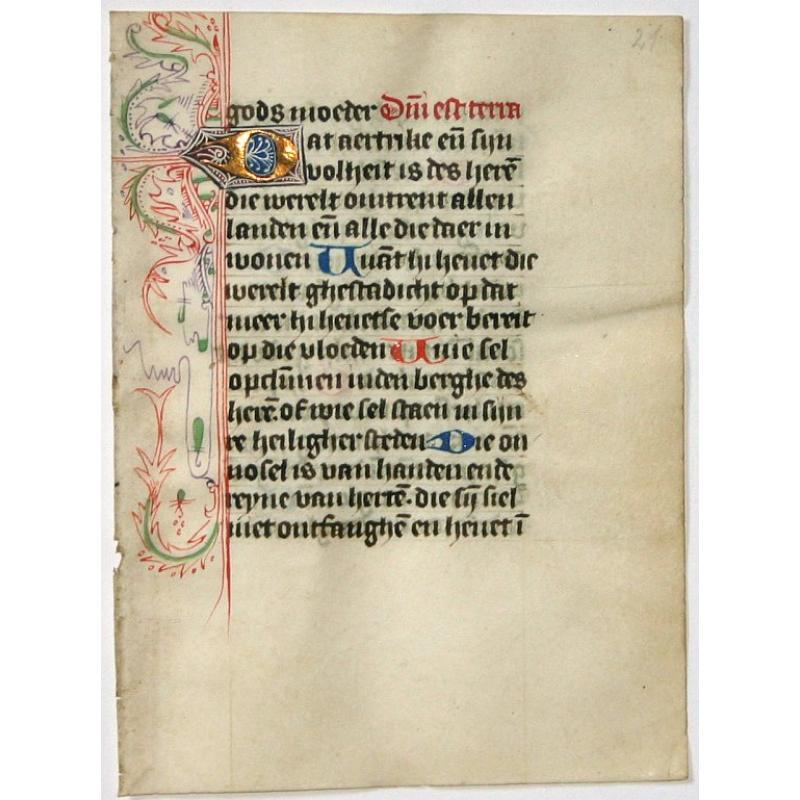 21
gods moeder Dñi est terra
Dat aertrike eñ sijn
volheit is des herē
die werelt omtrent allen
landen eñ alle die daer in
wonen Want hi hevet die
werelt ghestadicht op dat
meer hi hevetse voer bereit
op die vloeden Wie sel
opclīmen in den berghe des
herē. of wie sel staen in sijn
re heiligher steden Die on
nosel is van handen ende
reyne van hertē. die sij siel
niet ontfanghē en hevet ī